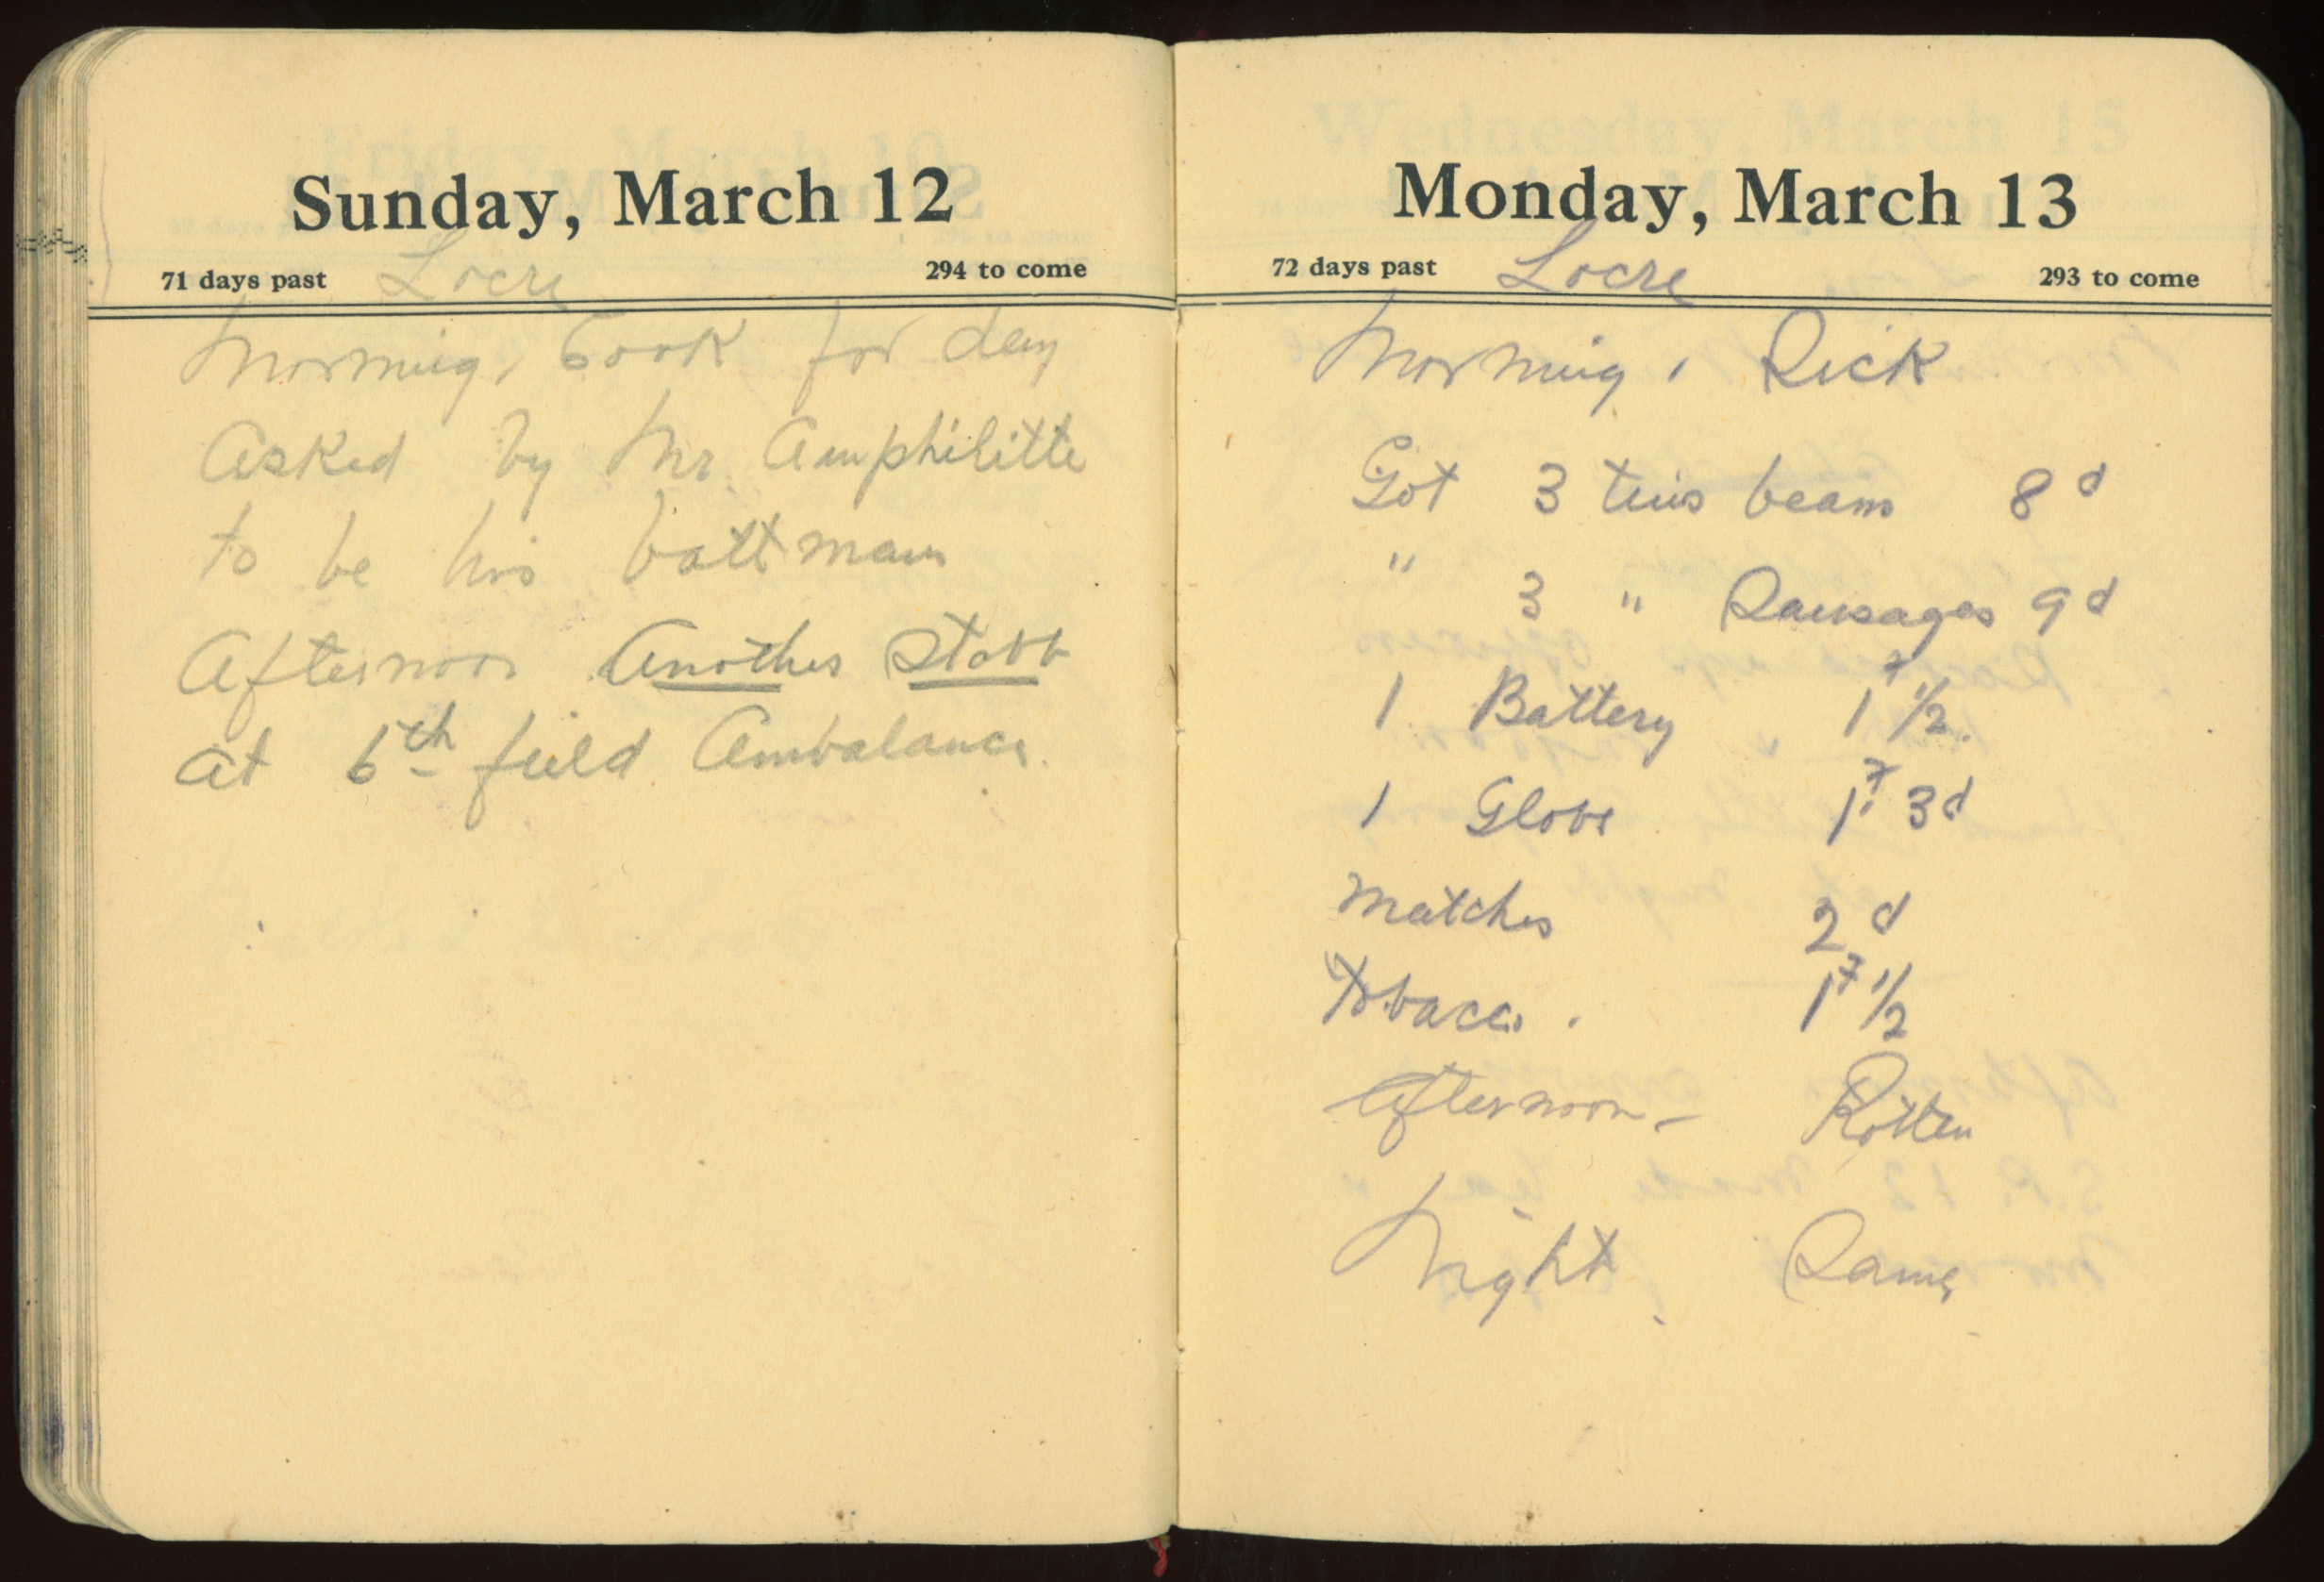 Sunday, March 12
71 days past Locre 294 to come
Morning, Cook for day
Asked by Mr Amphilitte
to be his battman
Afternoon Another Stabb
at 6th field Ambalance.
Monday, March 13
72 days past Locre 293 to come
Morning, Sick
Got 3 tins beans 8d
" 3 " Sausages 9d
1 Battery 1 1/2.
1 Globe 1 3d
Matches 2d
Tobacco. 1 1/2
Afternoon - Rotten
Night Same